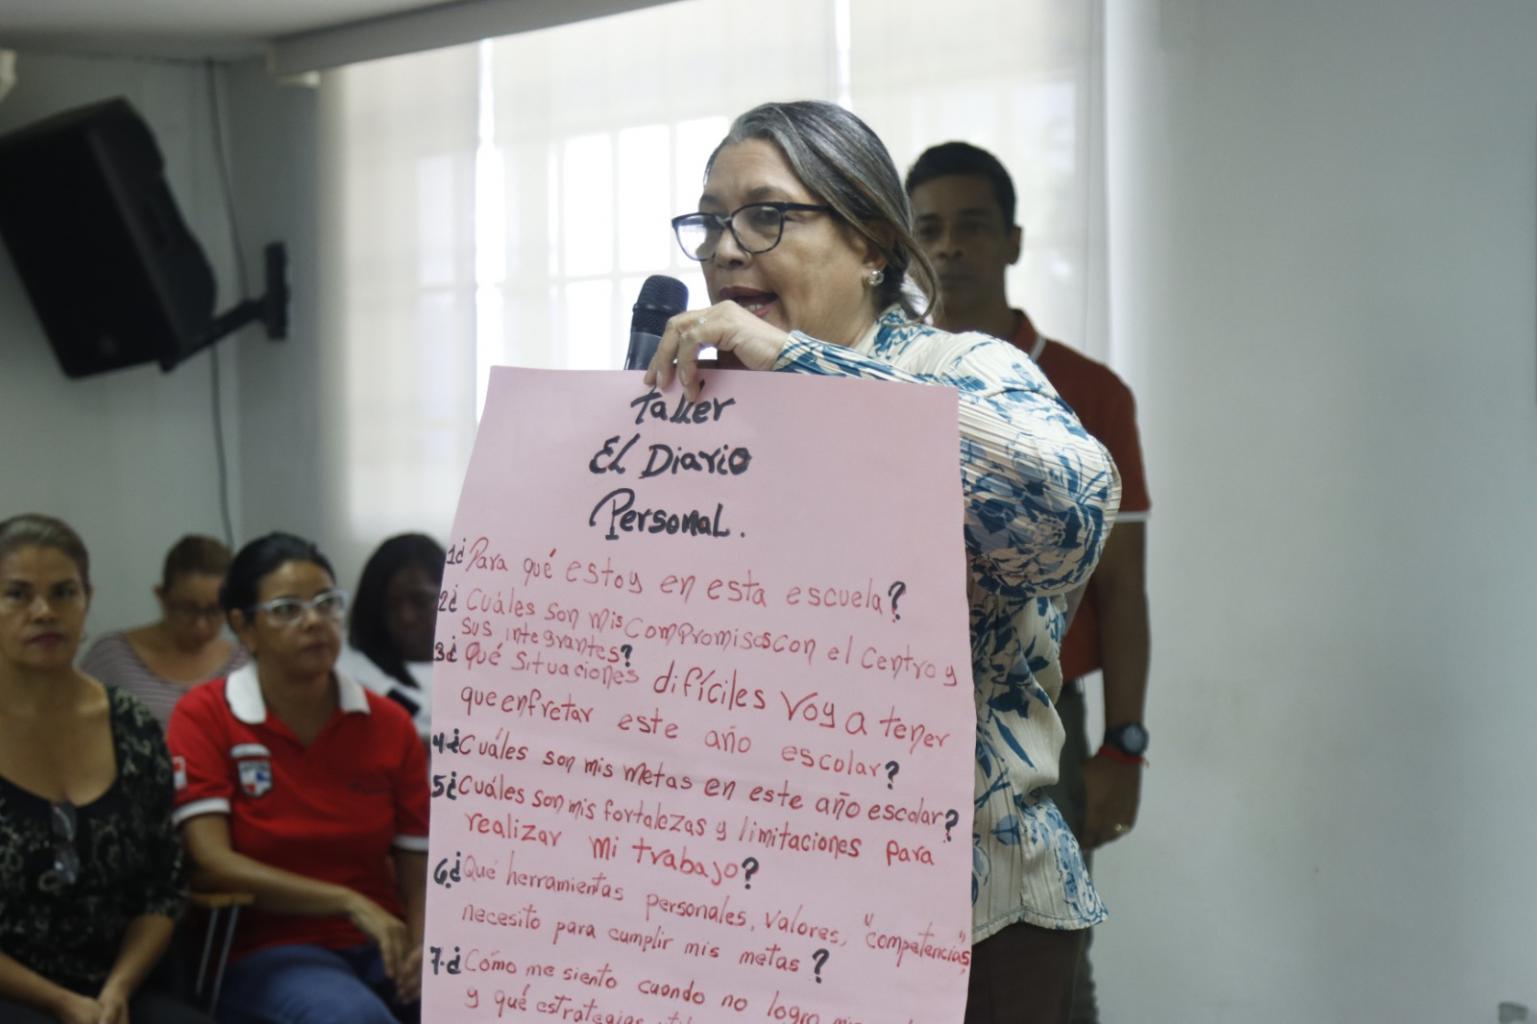 Taller
El Diario
Personal.
1¿Para qué estoy en esta escuela?
2¿Cuáles son mis compromisos con el Centro y
sus integrantes?
3¿Qué Situaciones difíciles voy a tener
que enfretar este año escolar?
4.¿Cuáles son mis metas en este año escolar?
5¿Cuáles son mis fortalezas y limitaciones para
realizar mi trabajo?
6.¿Qué herramientas personales, valores, "competencias"
necesito para cumplir mis metas?
7.¿Cómo me siento cuando no logro
y qué estrategias